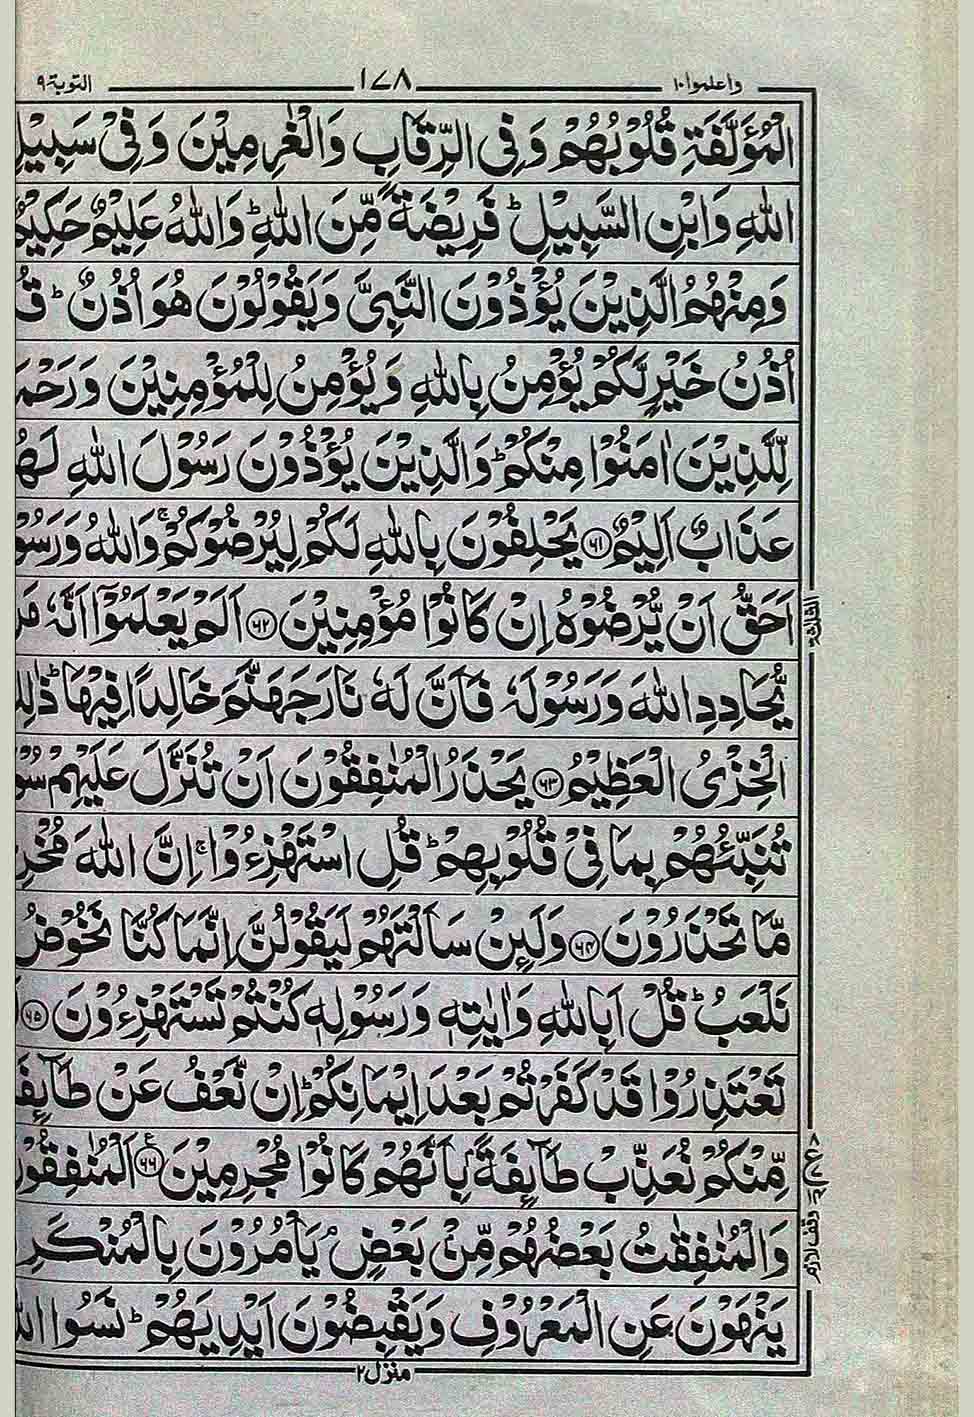 واعلموا ١٠
١٧٨
التوبة ٩
الْمُؤَلَّفَةِ قُلُوْبُهُمْ وَفِی الرِّقَابِ وَالْغٰرِمِیْنَ وَفِیْ سَبِیْلِ
اللّٰهِ وَابْنِ السَّبِیْلِ ؕ فَرِیْضَةً مِّنَ اللّٰهِ ؕ وَاللّٰهُ عَلِیْمٌ حَكِیْمٌ
وَمِنْهُمُ الَّذِیْنَ یُؤْذُوْنَ النَّبِیَّ وَیَقُوْلُوْنَ هُوَ اُذُنٌ ؕ
اُذُنُ خَیْرٍ لَّكُمْ یُؤْمِنُ بِاللّٰهِ وَیُؤْمِنُ لِلْمُؤْمِنِیْنَ
لِّلَّذِیْنَ اٰمَنُوْا مِنْكُمْ ؕ وَالَّذِیْنَ یُؤْذُوْنَ رَسُوْلَ اللّٰهِ
عَذَابٌ اَلِیْمٌ ﴿۶۱﴾ یَحْلِفُوْنَ بِاللّٰهِ لَكُمْ لِیُرْضُوْكُمْ ۚ وَاللّٰهُ
اَحَقُّ اَنْ یُّرْضُوْهُ اِنْ كَانُوْا مُؤْمِنِیْنَ ﴿۶۲﴾ اَلَمْ یَعْلَمُوْۤا اَنَّهٗ
یُّحَادِدِ اللّٰهَ وَرَسُوْلَهٗ فَاَنَّ لَهٗ نَارَ جَهَنَّمَ خَالِدًا فِیْهَا ؕ
الْخِزْیُ الْعَظِیْمُ ﴿۶۳﴾ یَحْذَرُ الْمُنٰفِقُوْنَ اَنْ تُنَزَّلَ عَلَیْهِمْ
تُنَبِّئُهُمْ بِمَا فِیْ قُلُوْبِهِمْ ؕ قُلِ اسْتَهْزِءُوْا ۚ اِنَّ اللّٰهَ
مَّا تَحْذَرُوْنَ ﴿۶۴﴾ وَلَىِٕنْ سَاَلْتَهُمْ لَیَقُوْلُنَّ اِنَّمَا كُنَّا نَخُوْضُ
نَلْعَبُ ؕ قُلْ اَبِاللّٰهِ وَاٰیٰتِهٖ وَرَسُوْلِهٖ كُنْتُمْ تَسْتَهْزِءُوْنَ ﴿۶۵﴾
تَعْتَذِرُوْا قَدْ كَفَرْتُمْ بَعْدَ اِیْمَانِكُمْ ؕ اِنْ نَّعْفُ عَنْ
مِّنْكُمْ نُعَذِّبْ طَآىِٕفَةًۢ بِاَنَّهُمْ كَانُوْا مُجْرِمِیْنَ ﴿۶۶﴾ ع اَلْمُنٰفِقُوْنَ
وَالْمُنٰفِقٰتُ بَعْضُهُمْ مِّنْۢ بَعْضٍ ۘ یَاْمُرُوْنَ بِالْمُنْكَرِ
یَنْهَوْنَ عَنِ الْمَعْرُوْفِ وَیَقْبِضُوْنَ اَیْدِیَهُمْ ؕ نَسُوا
الثلٰثة
وقف لازم
منزل ٢